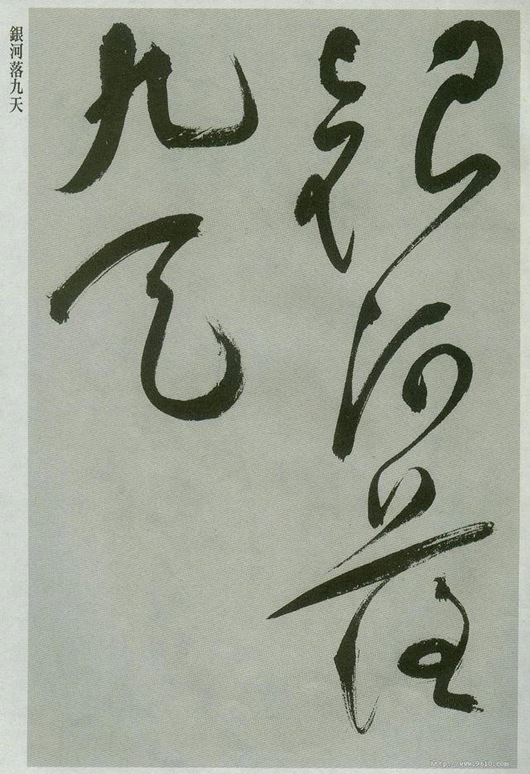 銀河落
九天
銀河落九天
http://www.9610.com